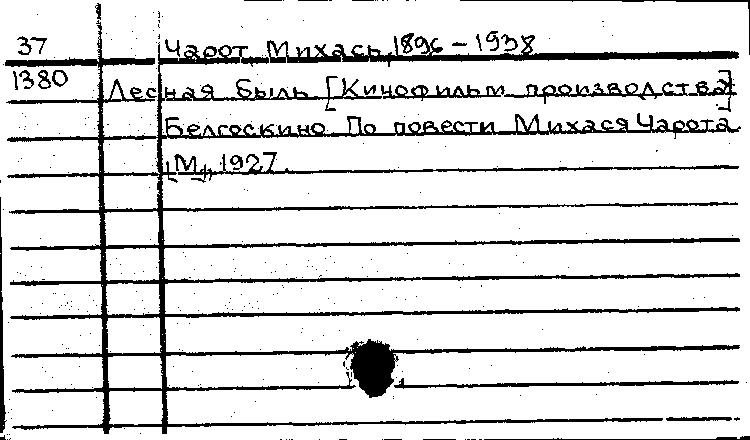 37 Чарот, Михась, 1896 - 1938
1380 Лесная быль [Кинофильм производства]
Белгоскино. По повести Михася Чарота.
[М.], 1927.